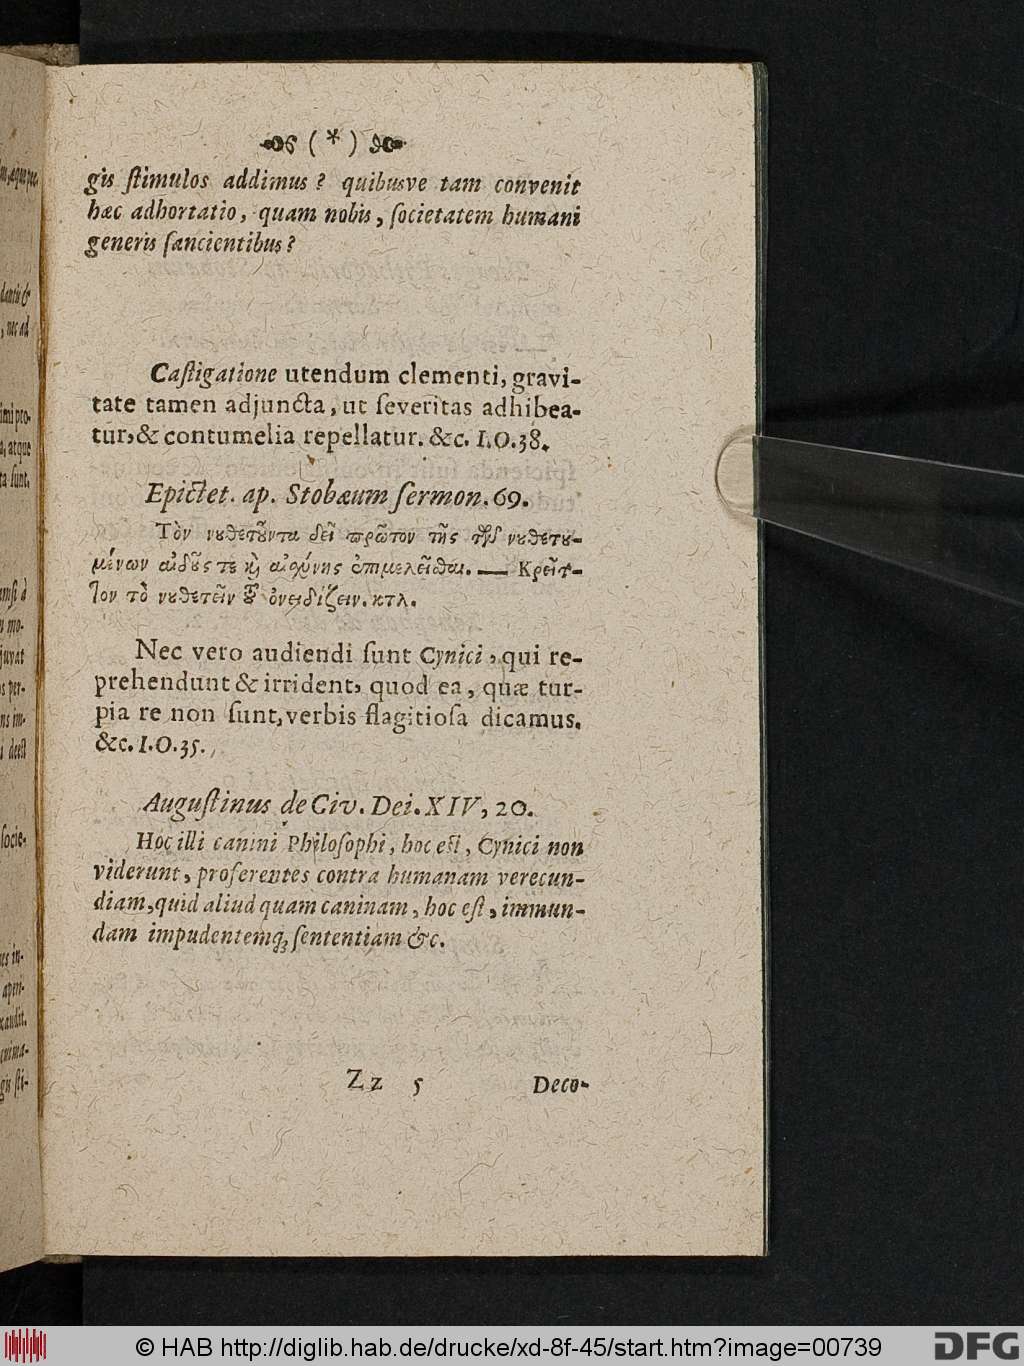 ( * )
gis ſtimulos addimus? quibusve tam convenit
hæc adhortatio, quam nobis, ſocietatem humani
generis ſancientibus?
Caſtigatione utendum clementi, gravi-
tate tamen adjuncta, ut ſeveritas adhibea-
tur, & contumelia repellatur. &c. I. O. 38.
Epictet. ap. Stobæum ſermon. 69.
Τὸν νουθετοῦντα δεῖ πρῶτον τῆς τῶν νουθετου-
μένων αἰδοῦς τε καὶ αἰσχύνης ἐπιμελεῖσθαι. — Κρεῖτ-
τον τὸ νουθετεῖν τοῦ ὀνειδίζειν. κτλ.
Nec vero audiendi ſunt Cynici, qui re-
prehendunt & irrident, quod ea, quæ tur-
pia re non ſunt, verbis flagitioſa dicamus.
&c. I. O. 35.
Auguſtinus de Civ. Dei. XIV, 20.
Hoc illi canini Philoſophi, hoc eſt, Cynici non
viderunt, proferentes contra humanam verecun-
diam, quid aliud quam caninam, hoc eſt, immun-
dam impudentemq; ſententiam &c.
Zz 5 Deco-
dantis &
, nec ad
imi pro-
a, atque
ta ſunt.
juvat
s per-
ns im-
i deeſt
ſocie-
es in-
aperi-
gis ſti-
© HAB http://diglib.hab.de/drucke/xd-8f-45/start.htm?image=00739
DFG